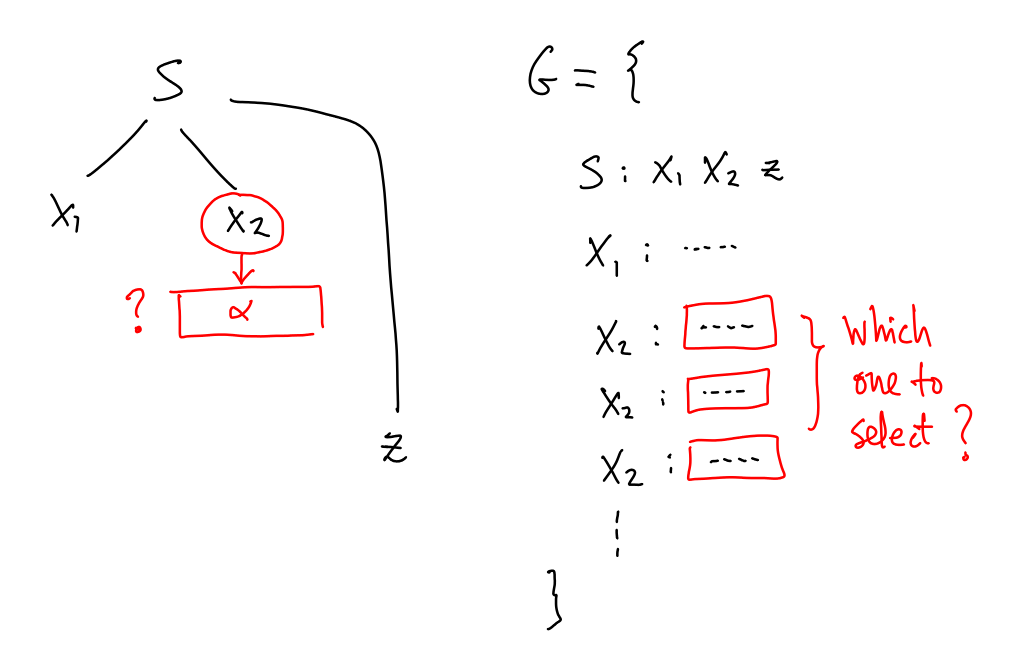 S
X₁
X₂
? α
z
G = {
S : X₁ X₂ z
X₁ : -----
X₂ : ----
X₂ : ----
X₂ : ----
⋮
}
which
one to
select ?